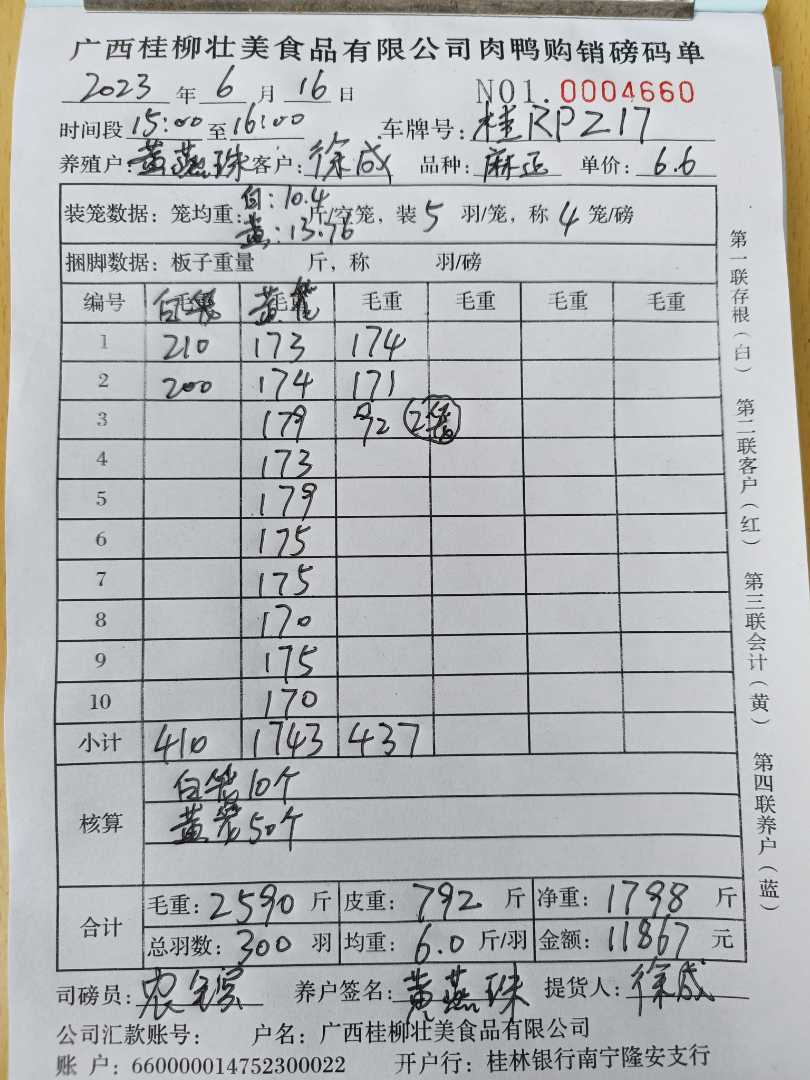 广西桂柳壮美食品有限公司肉鸭购销磅码单
2023 年 6 月 16 日 NO1.0004660
时间段 15:00 至 16:00 车牌号: 桂RPZ17
养殖户: 黄燕珠 客户: 徐成 品种: 麻 单价: 6.6
装笼数据: 笼均重: 白: 10.4 黄: 13.76 斤/空笼, 装 5 羽/笼, 称 4 笼/磅
捆脚数据: 板子重量 斤, 称 羽/磅
编号 白笼 黄笼 毛重 毛重 毛重 毛重
1 210 173 174
2 200 174 171
3 179 92 2笼
4 173
5 179
6 175
7 175
8 170
9 175
10 170
小计 410 1743 437
核算 白笼10个
黄笼50个
合计 毛重: 2590 斤 皮重: 792 斤 净重: 1798 斤
总羽数: 300 羽 均重: 6.0 斤/羽 金额: 11867 元
司磅员: 农 养户签名: 黄燕珠 提货人: 徐成
公司汇款账号: 户名: 广西桂柳壮美食品有限公司
账 户: 660000014752300022 开户行: 桂林银行南宁隆安支行
第一联存根(白) 第二联客户(红) 第三联会计(黄) 第四联养户(蓝)